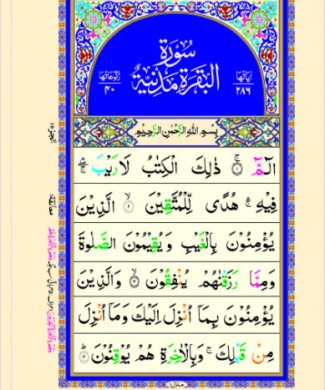 سُوْرَةُ
الْبَقَرَةِ مَدَنِيَّةٌ
اٰيَاتُهَا ٢٨٦
رُكُوْعَاتُهَا ٤٠
بِسْمِ اللّٰهِ الرَّحْمٰنِ الرَّحِيْمِ
الٓمّٓ ۚ ذٰلِكَ الْكِتٰبُ لَا رَيْبَ ۛۚ
فِيْهِ ۛۚ هُدًى لِّلْمُتَّقِيْنَ ۙ الَّذِيْنَ
يُؤْمِنُوْنَ بِالْغَيْبِ وَيُقِيْمُوْنَ الصَّلٰوةَ
وَمِمَّا رَزَقْنٰهُمْ يُنْفِقُوْنَ ۙ وَالَّذِيْنَ
يُؤْمِنُوْنَ بِمَآ اُنْزِلَ اِلَيْكَ وَمَآ اُنْزِلَ
مِنْ قَبْلِكَ ۚ وَبِالْاٰخِرَةِ هُمْ يُوْقِنُوْنَ ؕ